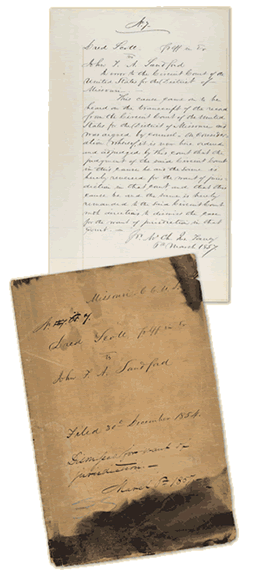 No 7
Dred Scott Plff in Er
vs
John F. A. Sandford
In error to the Circuit Court of the
United States for the District of
Missouri.
This cause came on to be
heard on the transcript of the record
from the Circuit Court of the United
States for the District of Missouri and
was argued by counsel. On consideration
whereof, it is now here ordered
and adjudged by this court that the
judgment of the said Circuit Court
in this cause be and the same is
hereby reversed for the want of juris-
diction in that court and that this
cause be and the same is hereby
remanded to the said Circuit Court
with directions to dismiss the case
for the want of jurisdiction in that
Court
Mr. Ch. Jus. Taney
6th March 1857
Missouri C. C. U. S.
No 7
Dred Scott Plff in Er
vs
John F. A. Sandford
Filed 30th December 1854.
Dismissed for want of
jurisdiction.
March 6th 1857